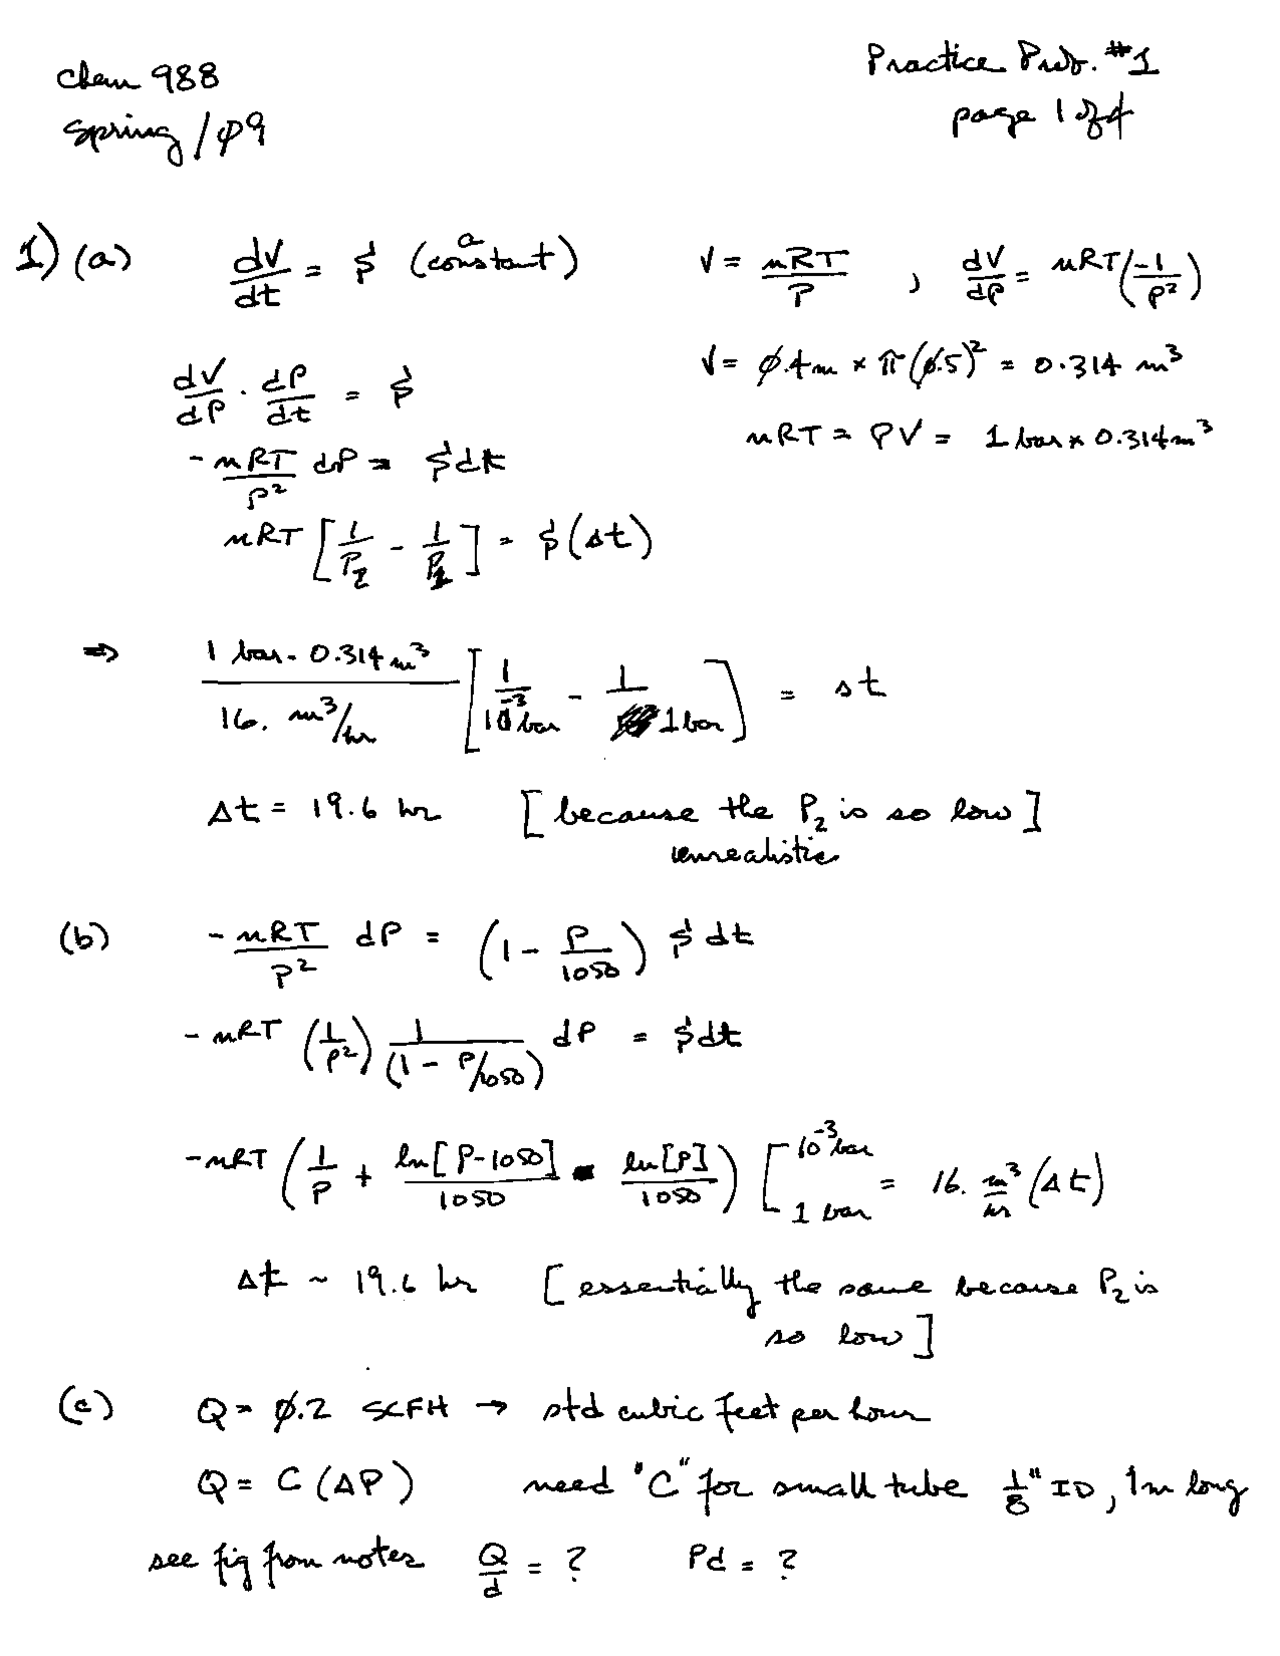 Chem 988
Spring/09
Practice Prob. #1
page 1 of 4
1) (a) dV/dt = S (a constant) V = nRT/P , dV/dP = nRT(-1/P²)
dV/dP · dP/dt = S V = 0.4m × π(0.5)² = 0.314 m³
nRT = PV = 1 bar × 0.314m³
-nRT/P² dP = S dt
nRT [1/P₂ - 1/P₁] = S(Δt)
⇒ 1 bar - 0.314 m³ / 16. m³/hr [1/10⁻³ bar - 1/1 bar] = Δt
Δt = 19.6 hr [because the P₂ is so low]
unrealistic
(b) -nRT/P² dP = (1 - P/1050) S dt
-nRT (1/P²) 1/(1 - P/1050) dP = S dt
-nRT (1/P + ln[P-1050]/1050 - ln[P]/1050) [10⁻³ bar 1 bar = 16. m³/hr (Δt)
Δt ~ 19.6 hr [essentially the same because P₂ is
so low]
(c) Q = 0.2 SCFH → std cubic feet per hour
Q = C (ΔP) need "C" for small tube 1/8" ID, 1m long
see fig from notes Q/d = ? Pd = ?